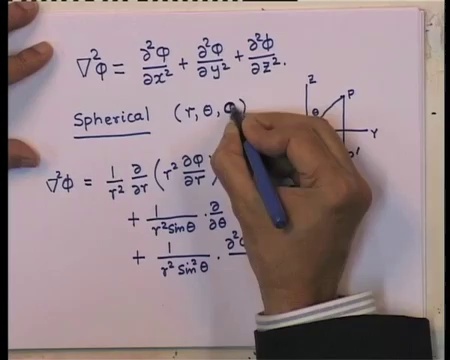 ∇²Φ = ∂²Φ/∂x² + ∂²Φ/∂y² + ∂²Φ/∂z².
Spherical (r, θ, Φ)
Z
P
θ
Y
∇²Φ = 1/r² ∂/∂r (r² ∂Φ/∂r)
+ 1/r²Sinθ · ∂/∂θ
+ 1/r² Sin²θ ∂²